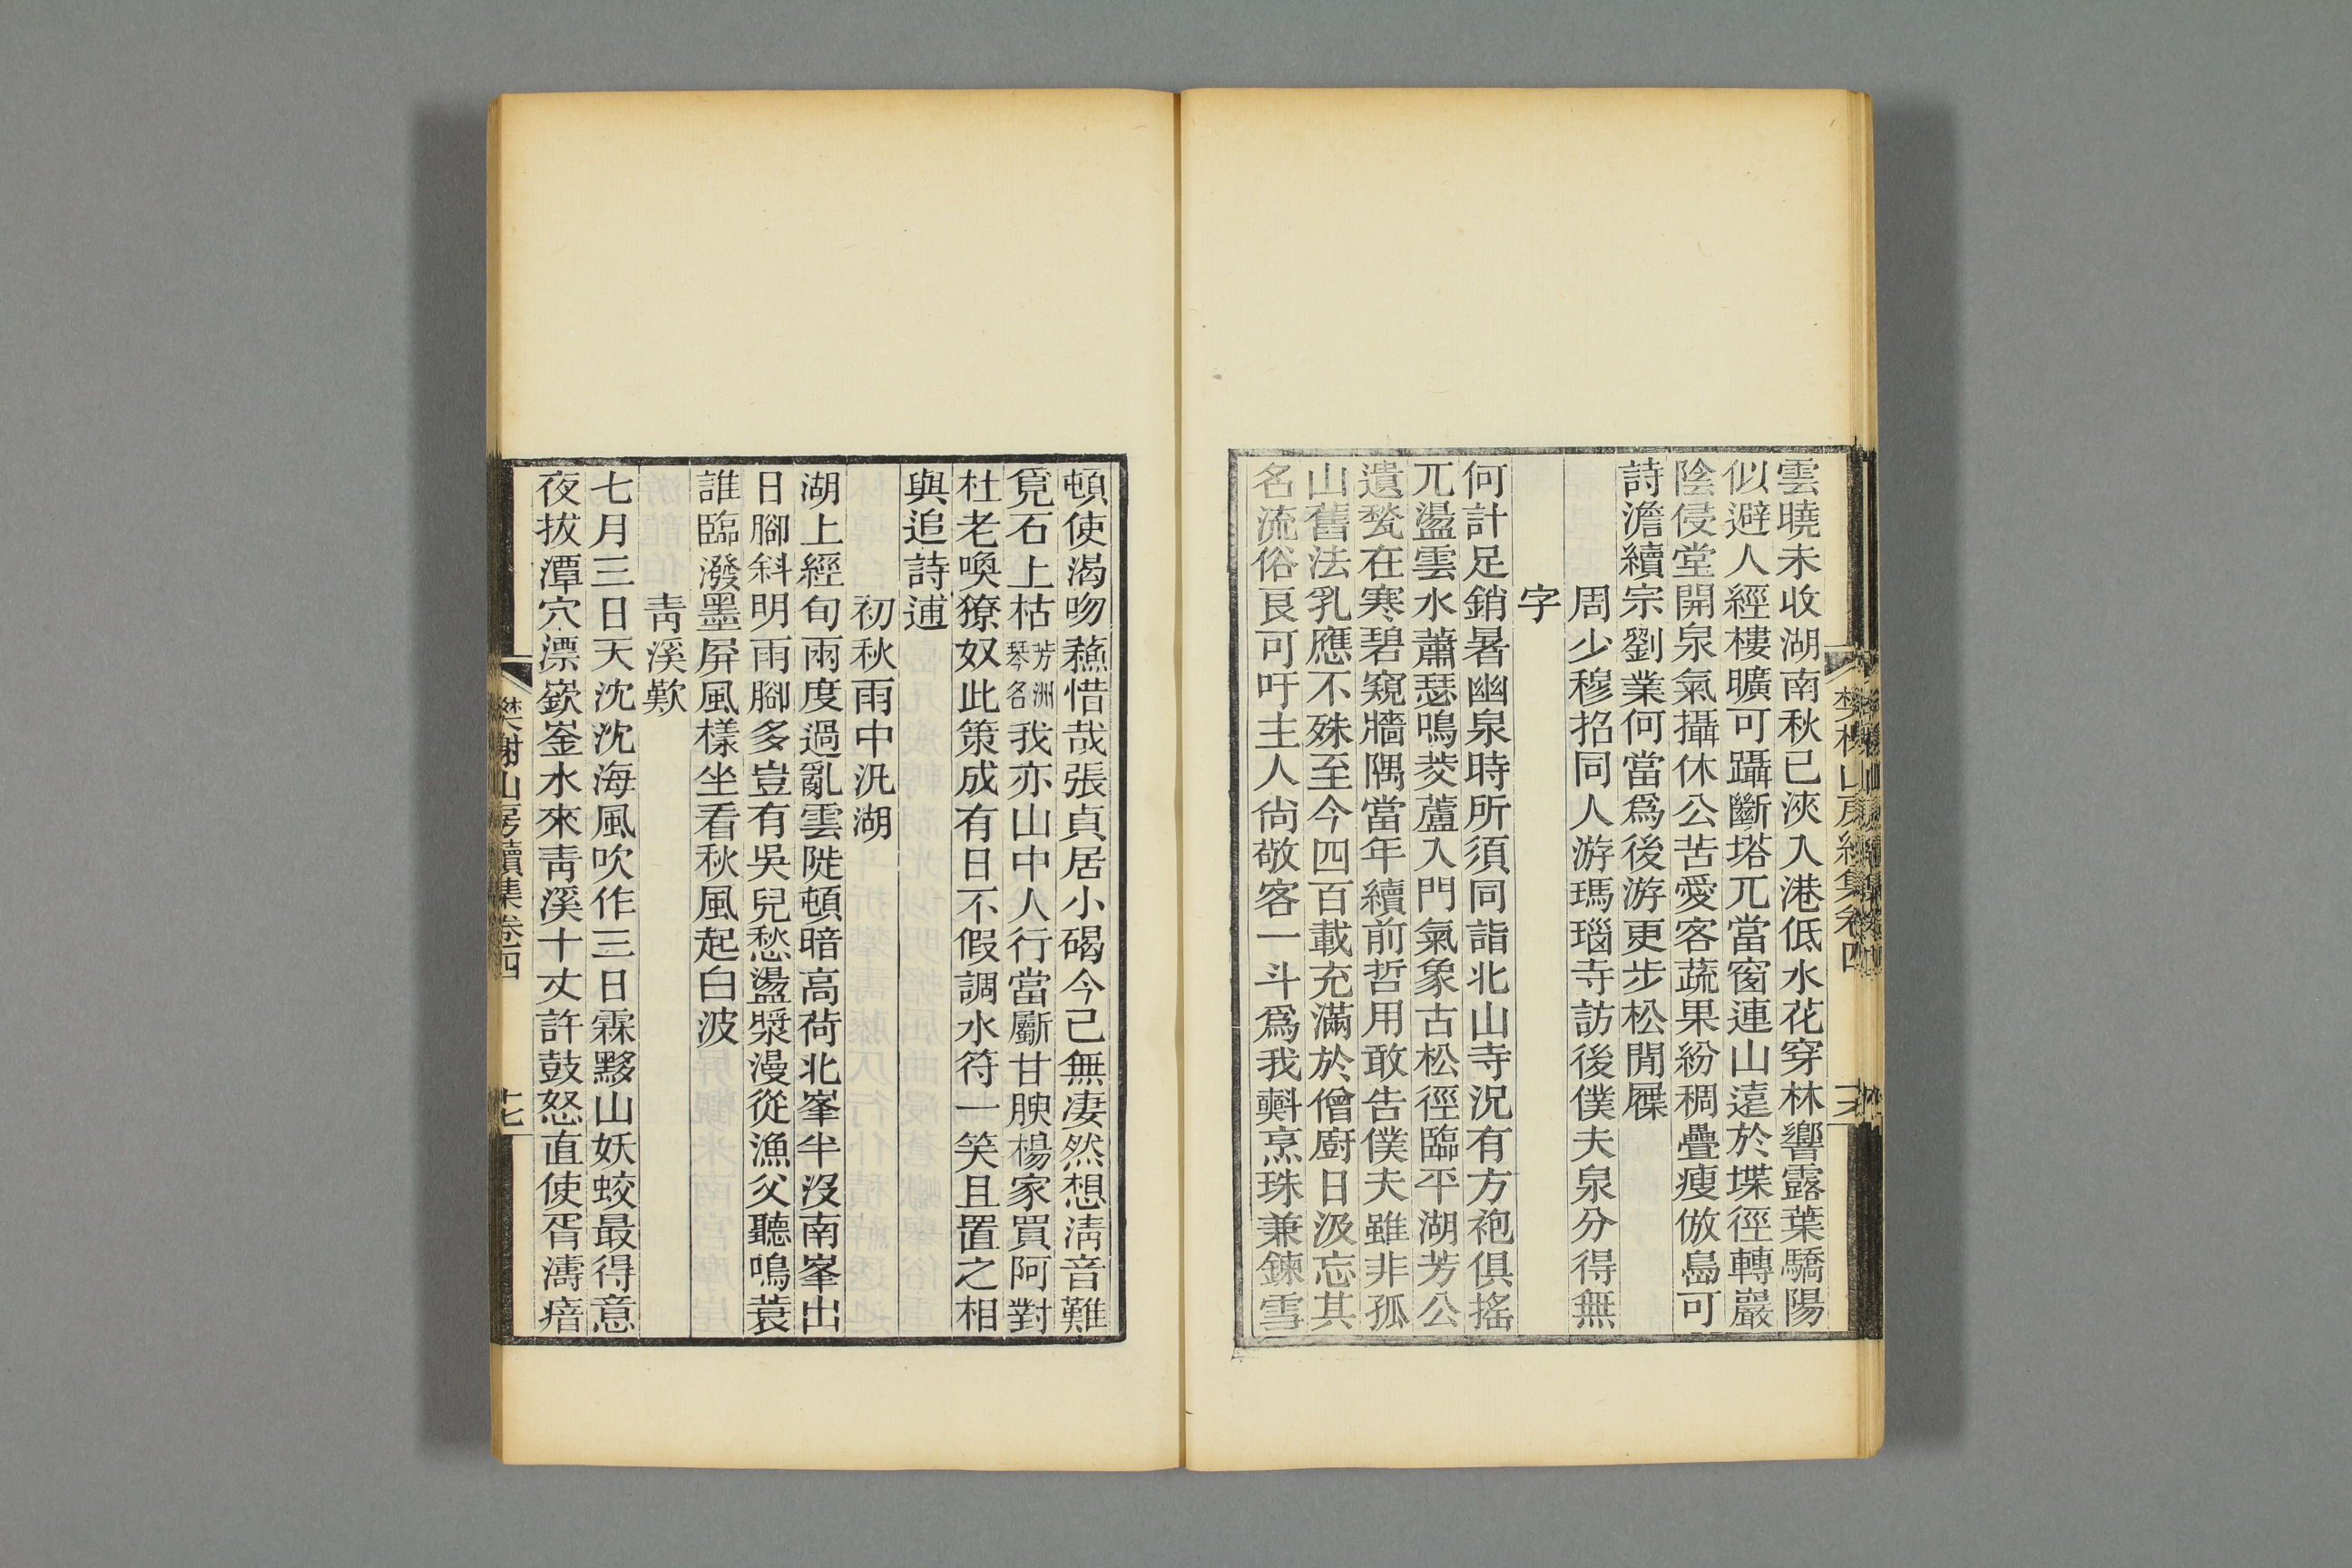 雲曉未收湖南秋已浹入港低水花穿林響露葉驕陽
似避人經樓曠可躡斷塔兀當窗連山遠於堞徑轉巖
陰侵堂開泉氣攝休公苦愛客蔬果紛稠疊瘦倣島可
詩澹續宗劉業何當爲後游更步松閒屧
周少穆招同人游瑪瑙寺訪後僕夫泉分得無
字
何計足銷暑幽泉時所須同詣北山寺況有方袍俱搖
兀盪雲水蕭瑟鳴菱蘆入門氣象古松徑臨平湖芳公
遺甃在寒碧窺牆隅當年續前哲用敢告僕夫雖非孤
山舊法乳應不殊至今四百載充滿於僧廚日汲忘其
名流俗良可吁主人尙敬客一斗爲我㪺烹珠兼鍊雪
頓使渴吻蘓惜哉張貞居小碣今已無凄然想淸音難
覓石上枯芳洲琴名我亦山中人行當斸甘腴楊家買阿對
杜老喚獠奴此策成有日不假調水符一笑且置之相
與追詩逋
初秋雨中汎湖
湖上經旬雨度過亂雲陡頓暗高荷北峯半沒南峯出
日腳斜明雨腳多豈有吳兒愁盪槳漫從漁父聽鳴蓑
誰臨潑墨屛風樣坐看秋風起白波
靑溪歎
七月三日天沈沈海風吹作三日霖黟山妖蛟最得意
夜拔潭穴漂嶔崟水來靑溪十丈許鼓怒直使胥濤瘖
樊榭山房續集卷四
十七